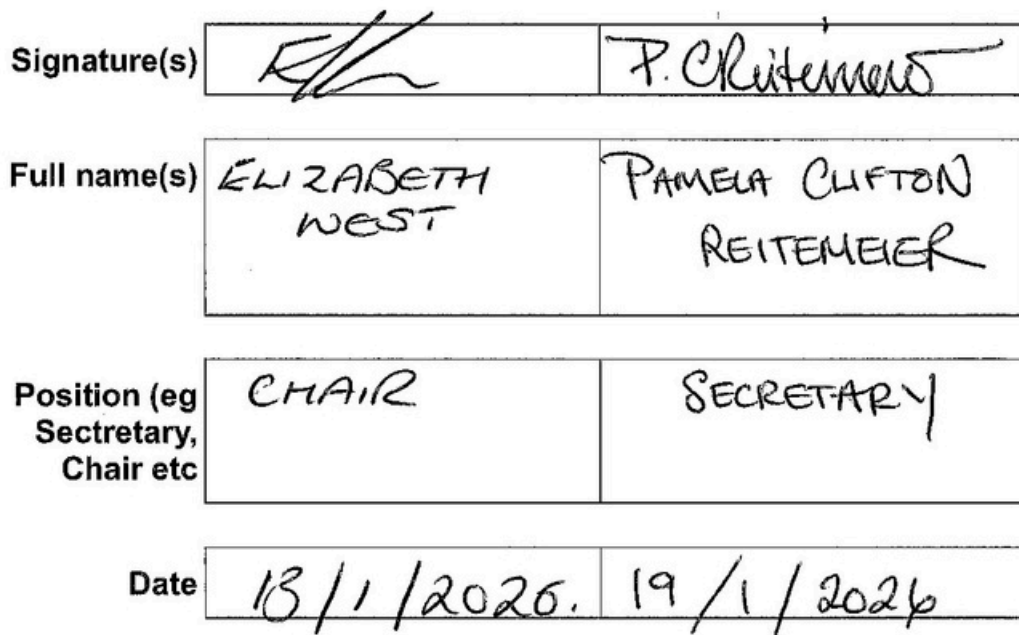 Signature(s) P. CReitemeier
Full name(s) ELIZABETH WEST PAMELA CLIFTON REITEMEIER
Position (eg Sectretary, Chair etc CHAIR SECRETARY
Date /1/2026. 19/1/2026